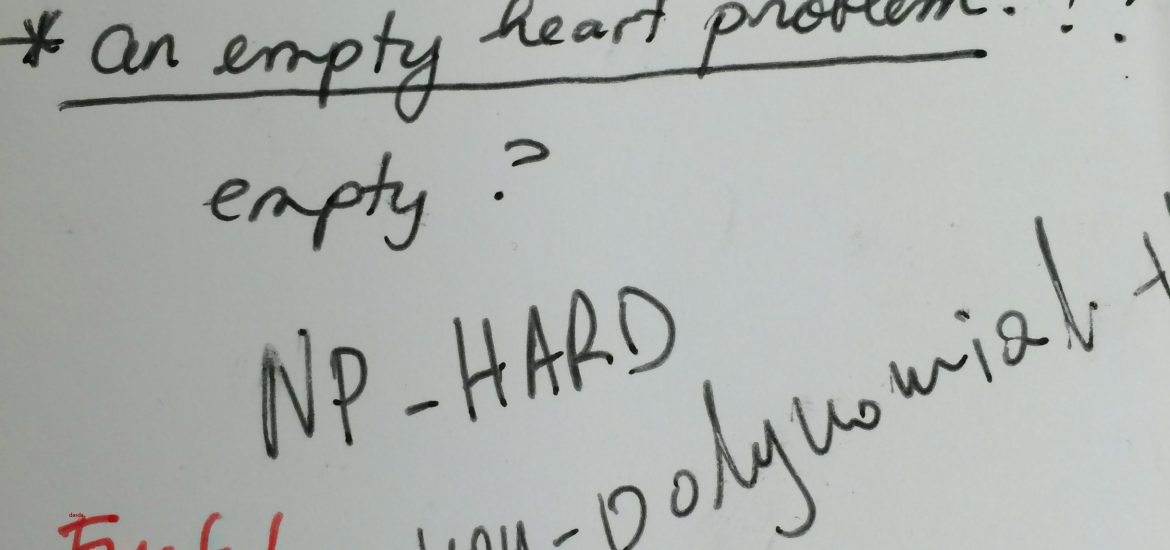 * an empty heart problem. ! ?
empty ?
NP-HARD
non-polynomial